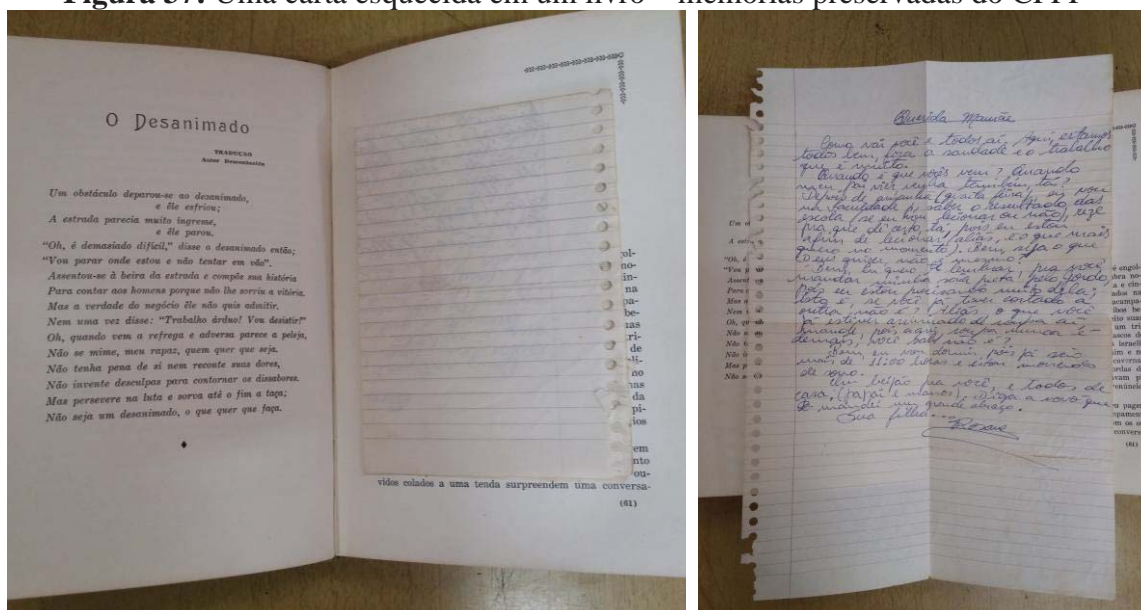 Figura 57: Uma carta esquecida em um livro – memórias preservadas do
O Desanimado
TRADUÇÃO
Autor Desconhecido
Um obstáculo deparou-se ao desanimado,
e êle esfriou;
A estrada parecia muito íngreme,
e êle parou,
"Oh, é demasiado difícil," disse o desanimado então;
"Vou parar onde estou e não tentar em vão".
Assentou-se à beira da estrada e compôs sua história
Para contar aos homens porque não lhe sorriu a vitória.
Mas a verdade do negócio êle não quis admitir.
Nem uma vez disse: "Trabalho árduo! Vou desistir!"
Oh, quando vem a refrega e adversa parece a peleja,
Não se mime, meu rapaz, quem quer que seja.
Não tenha pena de si nem reconte suas dores,
Não invente desculpas para contornar os dissabores.
Mas persevere na luta e sorva até o fim a taça;
Não seja um desanimado, o que quer que faça.
vidos colados a uma tenda surpreendem uma conversa-
(61)
Querida Mamãe
Como vai você e todos aí. Aqui estamos
todos bem, fora a saudade e o trabalho
que é muito.
Quando é que vocês vem? Quando
meu pai vier venha também, tá?
Depois de amanhã (quarta feira) eu vou
na faculdade p/ saber o resultado das
escola (se eu vou lecionar ou não), reze
pra que dê certo, tá, pois eu estou
afim de lecionar (aliás, é o que mais
quero no momento). Bem seja o que
Deus quizer, não é mesmo?
Bem, eu quero te lembrar, pra você
mandar minha saia preta
pois eu estou precisando muito dela;
isto é, se você já tiver cortado a
outra, não é? Aliás o que você
já estiver arrumado de roupa aí
mande pois aqui roupa nunca é
demais, você sabe não é?
Bem, eu vou dormir, pois já são
mais de 11:00 horas e estou morrendo
de sono.
Um beijão pra você, e todos de
casa, (papai e manos), diga a vovó que
mandei um grande abraço.
Sua filha...
(61)